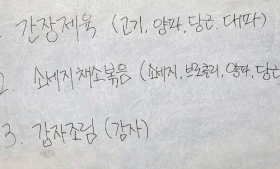 . 간장제육 (고기, 양파, 당근, 대파)
2. 소세지채소볶음 (소세지, 브로콜리, 양파, 당근
3. 감자조림 (감자)